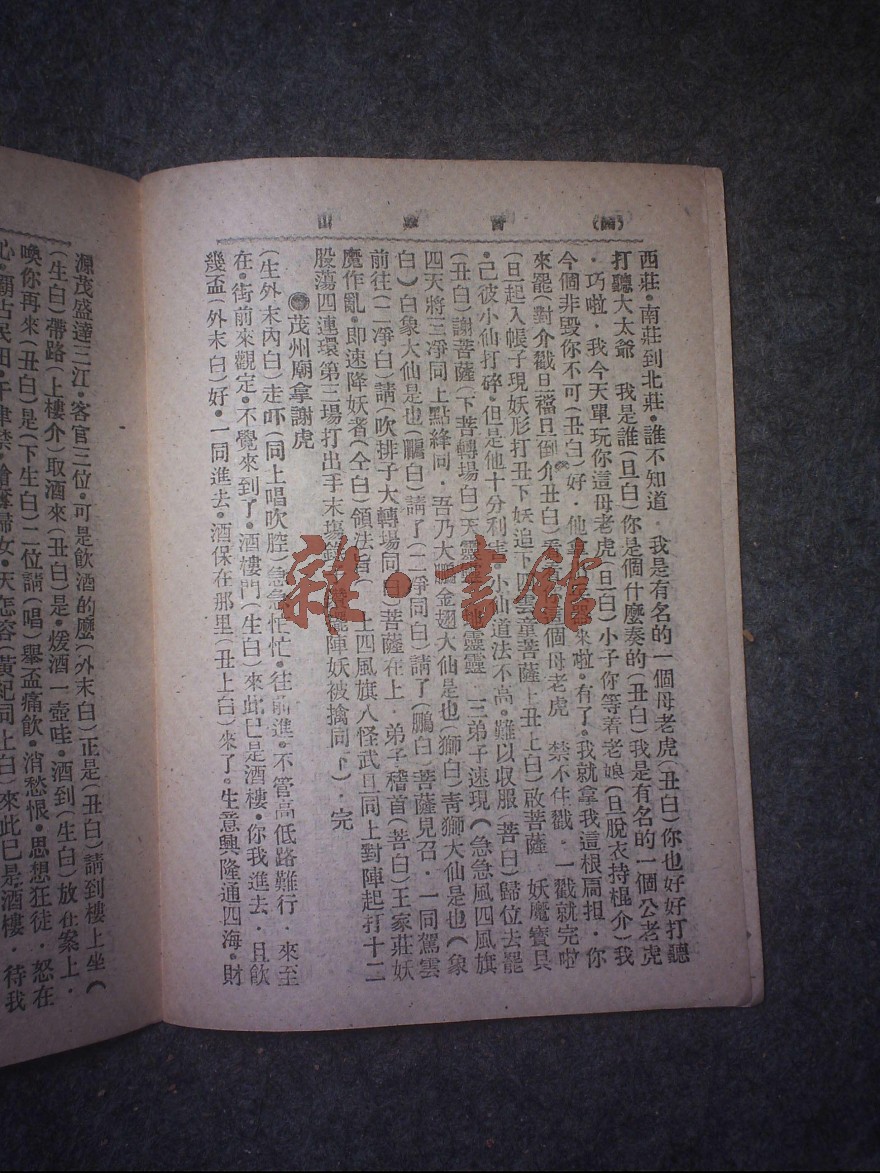 山 香 (四)
西莊·南莊到北莊·誰不知道·我是有名的一個母老虎(丑白)你也好好打聽
打聽大太爺 我是誰(旦白)你是個什麼奏的(丑白)我是有名的一個公老虎
·巧啦·我今天單玩你這母老虎(旦白)小子你等着老娘(旦脫衣持棍介)我
今個非毀你不可(丑白)好·他拿 器來啦·有了·我就拿我這根扁担·你
來罷(對介戳旦襠旦倒介丑白) 個母老虎 禁不住戳·一戳就完啦
(旦起入帳子現妖形打丑下妖追下四雲童菩薩上丑上白)啟菩薩 妖魔寶貝
·己彼小仙打碎·但是他十分利害·小仙道法不高·難以収服(菩白)歸位去罷
(丑白)謝菩薩(下菩轉場白)天靈靈 靈靈 三弟子速現(急急風四風旗
四天將三凈同上點絳同·吾乃大鵬金翅大仙是也(獅白)青獅大仙是也(象
白)白象大仙是也(鵬白)請了(二凈同白)請了(鵬白)菩薩見召·一同駕雲
前往(二凈白)請(吹排子大轉場同白)菩薩在上·弟子稽首(菩白)王家莊妖
魔作亂·即速降妖者(仝白)領法旨(上四風旗八怪武旦同上對陣起打十二
股蕩四連環第三場打出手末塲 陣妖被擒同下)·完
●茂州廟拿謝虎
(生外末內白)走吓(同上唱吹腔)急急忙忙·往前進·不管高低路難行·來至
在·街前來觀定·不覺來到了·酒樓門(生白)來此巳是酒樓·你我進去·且飲
幾盃(外末白)好·一同進去·酒保在那里(丑上白)來了·生意興隆通四海·財
源茂盛達三江·客官三位·可是飲酒的麼(外末白)正是(丑白)請到樓上坐(
(生白)帶路(上樓介)取酒來(丑白)是·煖酒一壺哇·酒到(生白)放在案上·
喚你再來(丑白)是(下生白)二位請(唱)舉盃痛飲·消愁恨·思想狂徒·怒在
心·霸占民田·干律禁·搶奪婦女·天怎容(黃妃同上白)來此巳是酒樓·待我
雜·書館